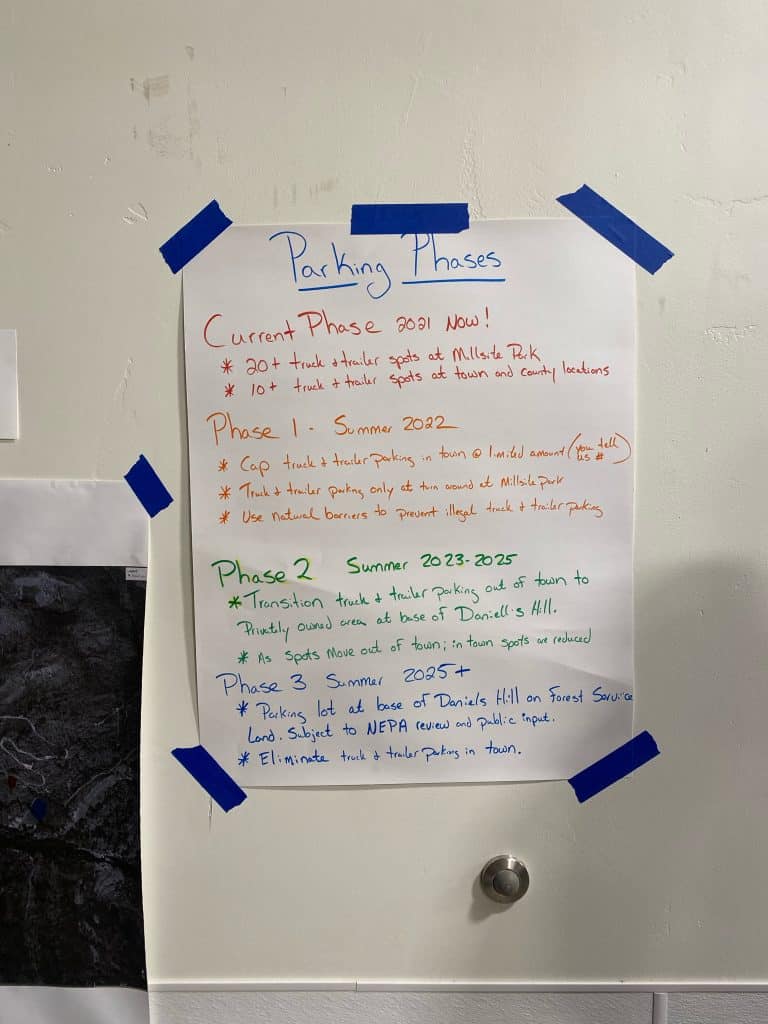 Parking Phases
Current Phase 2021 Now!
* 20+ truck & trailer spots at Millsite Park
* 10+ truck & trailer spots at town and county locations
Phase 1 - Summer 2022
* Cap truck & trailer parking in town @ limited amount (you tell us #)
* Truck & trailer parking only at turn around at Millsite Park
* Use natural barriers to prevent illegal truck & trailer parking
Phase 2 Summer 2023-2025
* Transition truck & trailer parking out of town to
Privately owned area at base of Daniell's Hill.
* As spots move out of town; in town spots are reduced
Phase 3 Summer 2025+
* Parking lot at base of Daniels Hill on Forest Service
Land. Subject to NEPA review and public input.
* Eliminate truck & trailer parking in town.